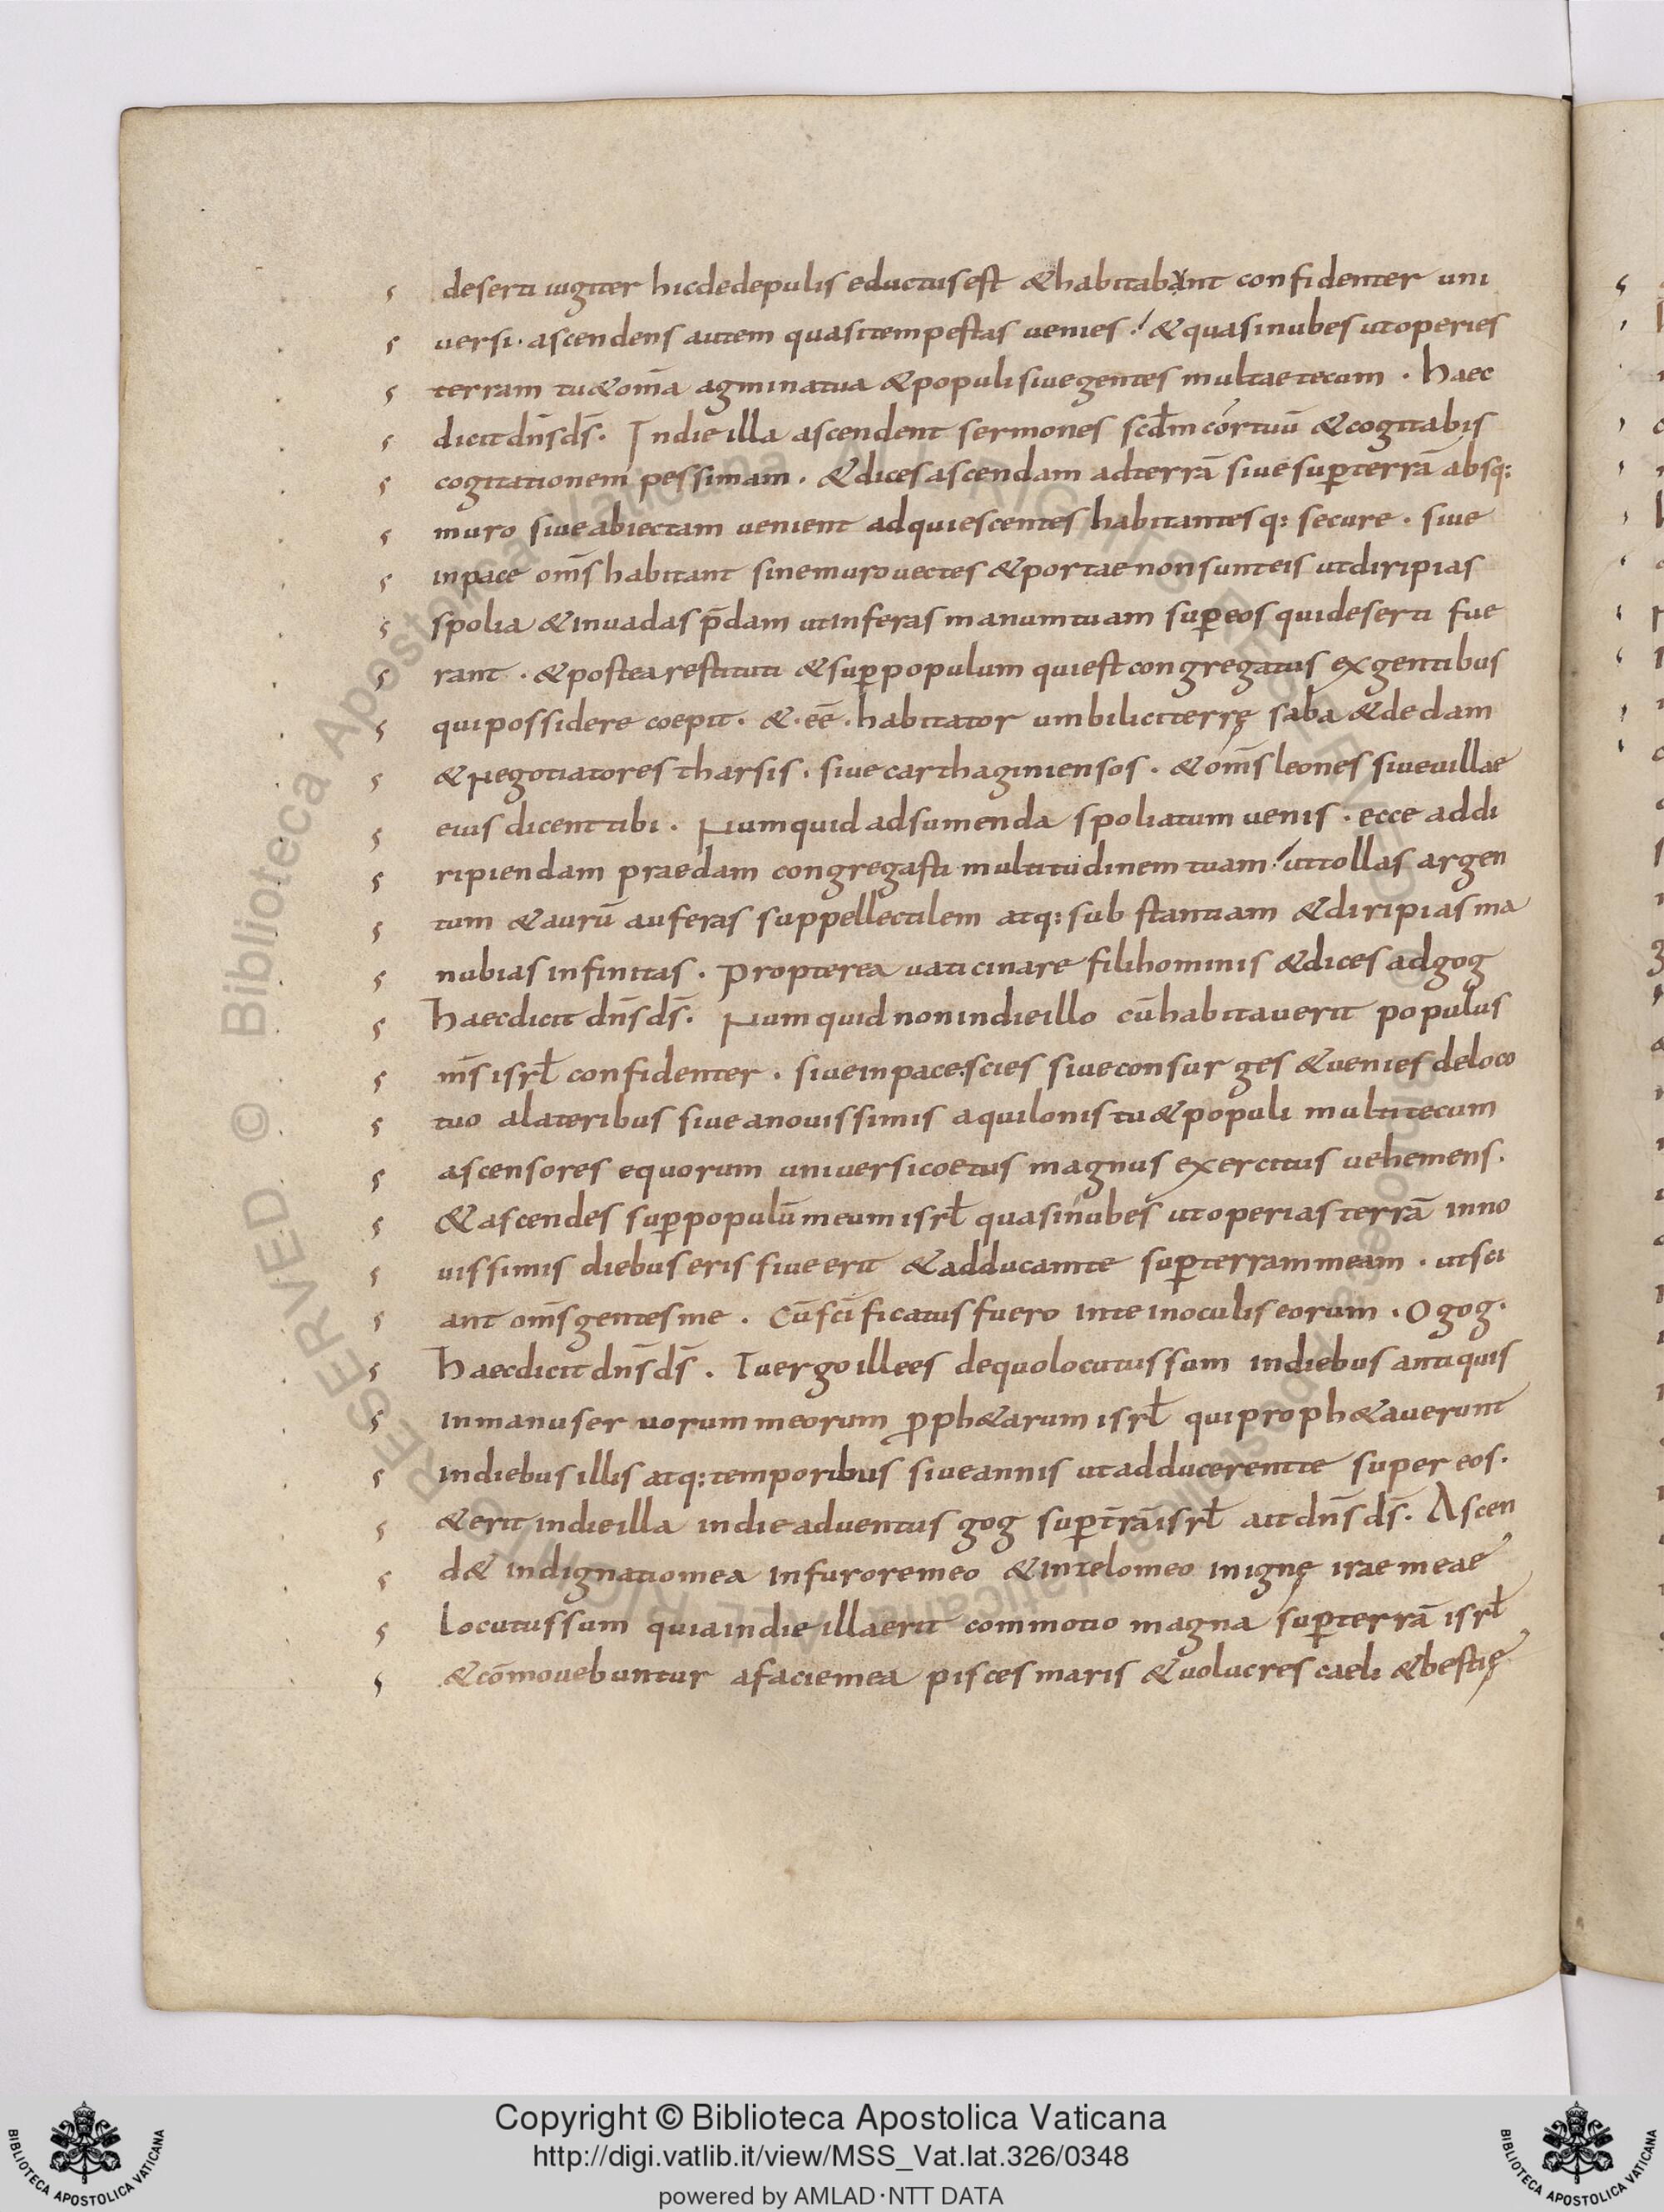 deserti iugiter hicdedepulis eductusest &habitabant confidenter uni
uersi · ascendens autem quasitempestas uenies ! &quasinubes utoperies
terram tu&om̄a agminatua &populisiuegentes multaetecum · haec
dicit dn̄s ds̄. Indieilla ascendent sermones scd̄m cortuū &cogitabis
cogitationem pessimam . &dicesascendam adterrā siuesup̄terrā absq:
muro siueabiectam uenient adquiescentes habitantesq: secure . siue
inpace om̄s habitant sinemurouectes &portaenonsunteis utdiripias
spolia &inuadas p̄dam utinferas manumtuam sup̄eos quideserti fue
rant . &postearestituti &sup̄populum quiestcongregatus exgentibus
quipossidere coepit. &·eē·habitator umbiliciterrę saba &dedam
&Negotiatores tharsis. siue carthaginiensos . &om̄sleones siueuillae
eius dicenttibi . Numquid adsumenda spoliatum uenis . ecce addi
ripiendam praedam congregasti multitudinem tuam ! uttollas argen
tum &aurū auferas suppellectilem atq: sub stantiam &diripias ma
nubias infinitas . Propterea uaticinare filihominis &dices adgog
haecdicit dn̄s ds̄. Numquid nonindieillo cūhabitauerit populus
m̄s isrł confidenter . siueinpace.scies siueconsurges &uenies deloco
tuo alateribus siueanouissimis aquilonis tu&populi multitecum
ascensores equorum uniuersicoetus magnus exercitus uehemens.
&ascendes sup̄populūmeum isrł quasinubes utoperias terrā inno
uissimis diebus eris siueerit &adducamte sup̄terrammeam . utsci
ant om̄sgentesme . Cūsc̄ificatusfuero inte inoculiseorum . O gog.
haecdicit dn̄s ds̄ . Tuergoillees dequolocutussum indiebus antiquis
inmanuseruorummeorum p̄ph&arum isrł quiproph&auerunt
indiebusillis atq:temporibus siueannis utadduceremte super eos.
&erit indieilla indieaduentus gog sup̄t̄rāisrł ait dn̄s ds̄. Ascen
d& indignatiomea infuroremeo &inzelomeo inignę irae meae
Locutussum quiaindieillaerit commotio magna sup̄terrā isrł
&cōmouebuntur afaciemea pisces maris &uolucres caeli &bestię
Copyright © Biblioteca Apostolica Vaticana
http://digi.vatlib.it/view/MSS_Vat.lat.326/0348
powered by AMLAD·NTT DATA